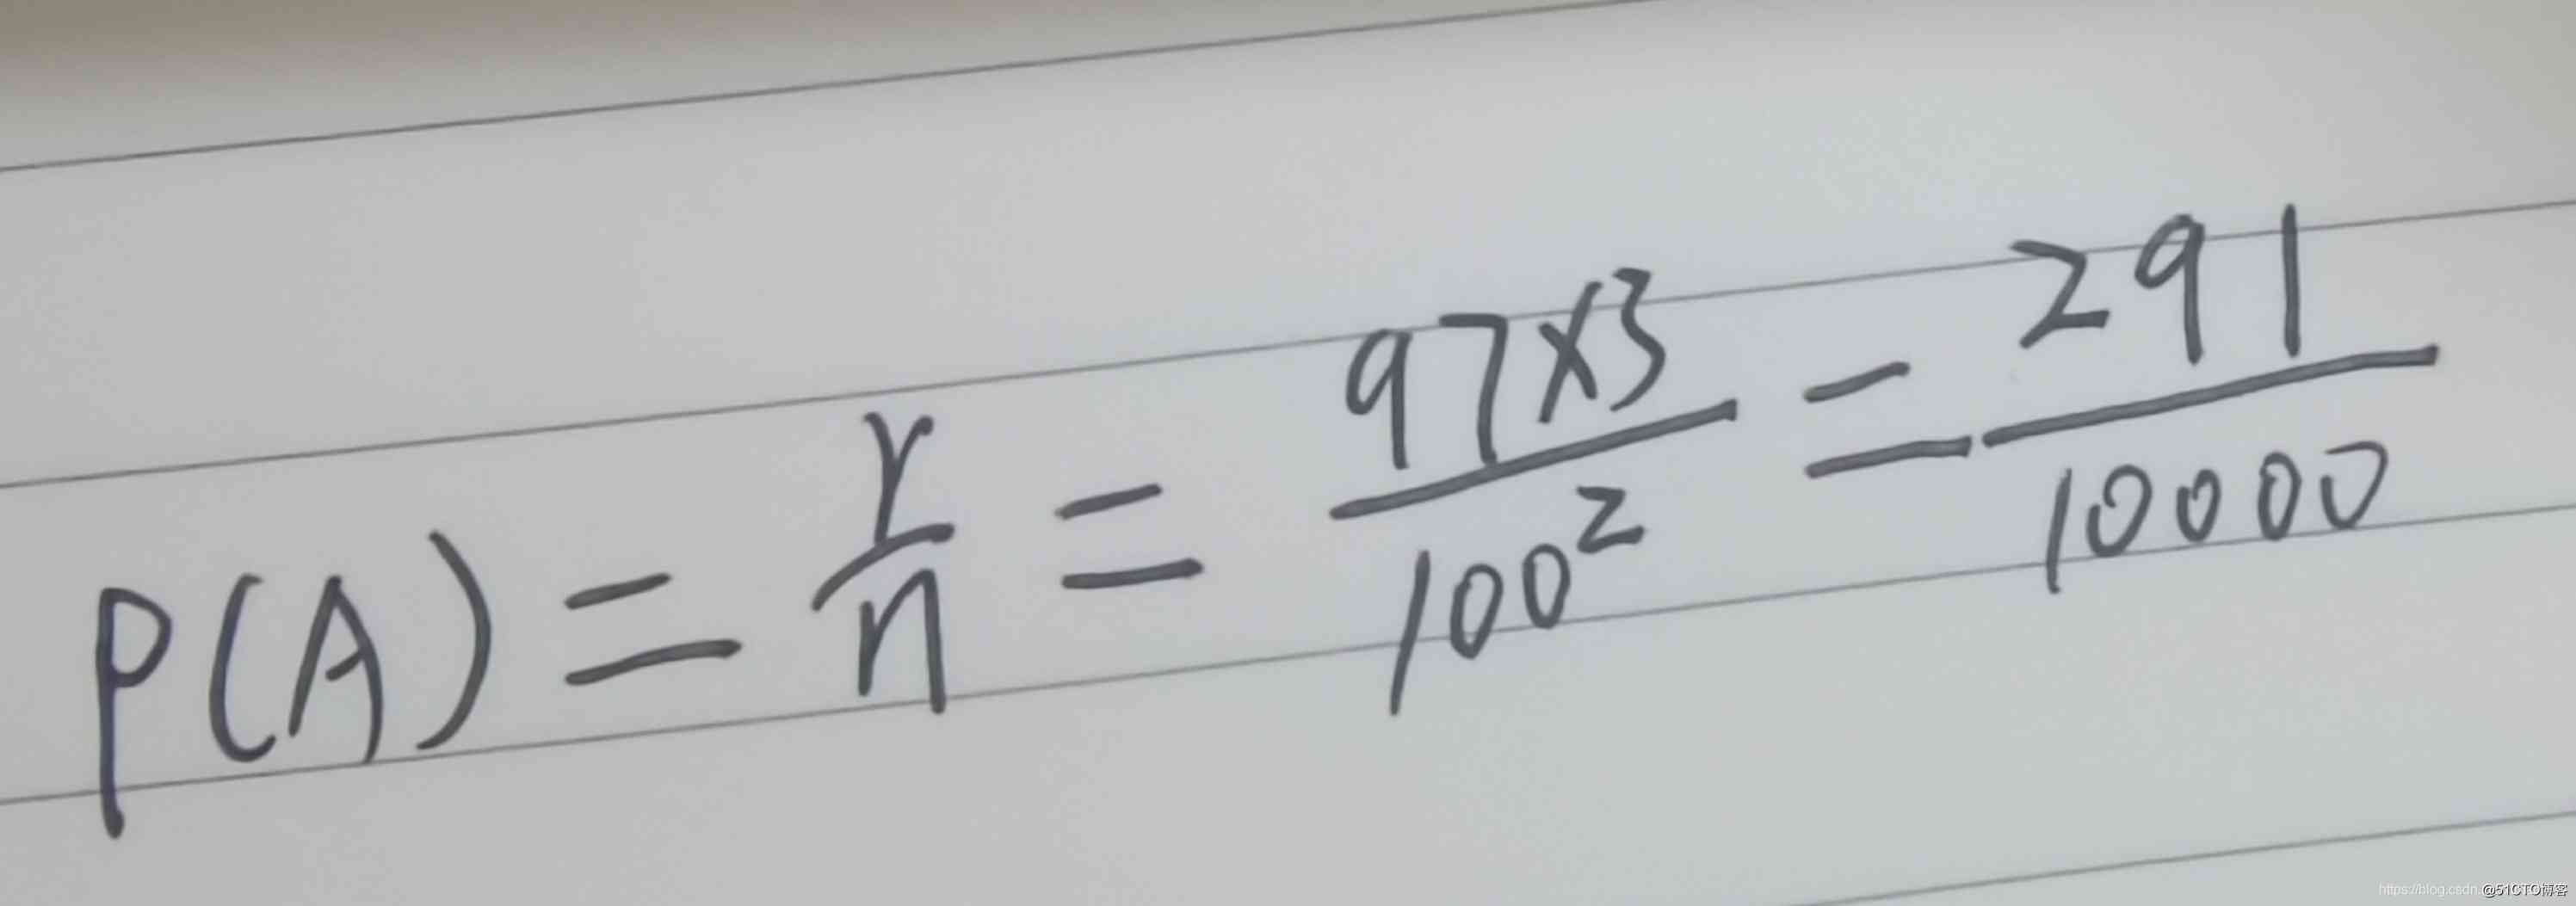 P(A) = r/n = 97×3/100² = 291/10000
https://blog.csdn. @51CTO博客